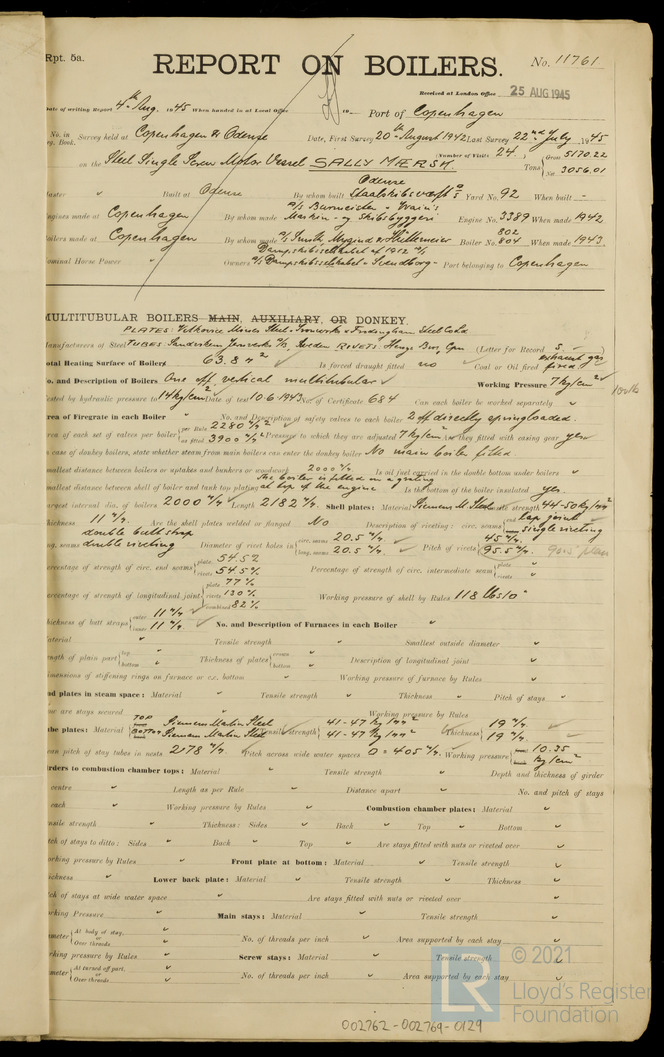 Rpt. 5a.
REPORT ON BOILERS.
No. 11761
Received at London Office 25 AUG 1945
Date of writing Report 4th Aug. 1945 When handed in at Local Office 19 Port of Copenhagen
No. in Survey held at Copenhagen & Odense Date, First Survey 20th August 1942 Last Survey 22nd July 1945
Book. (Number of Visits 24)
on the Steel Single Screw Motor Vessel SALLY MÆRSK. Tons Gross 5170.22
Net 3056.01
Master Built at Odense By whom built Odense Staalskibsværft Yard No. 92 When built -
Engines made at Copenhagen By whom made A/S Burmeister & Wain's Maskin- og Skibsbyggeri Engine No. 3389 When made 1942
Boilers made at Copenhagen By whom made Boiler No. 802 804 When made 1943
Nominal Horse Power Owners Dampskibsselskabet af 1912 A/S A/S Dampskibsselskabet Svendborg Port belonging to Copenhagen
MULTITUBULAR BOILERS MAIN, AUXILIARY, OR DONKEY.
Manufacturers of Steel (Letter for Record S.)
Total Heating Surface of Boilers 63.8 m² Is forced draught fitted no Coal or Oil fired exhaust gas fired
No. and Description of Boilers One off vertical multitubular Working Pressure 7 kg/cm²
Tested by hydraulic pressure to 14 kg/cm² Date of test 10.6.1943 No. of Certificate 684 Can each boiler be worked separately
Area of Firegrate in each Boiler No. and Description of safety valves to each boiler 2 off directly springloaded.
Area of each set of valves per boiler per Rule 2280 as fitted 3900 Pressure to which they are adjusted 7 kg/cm² Are they fitted with easing gear yes
In case of donkey boilers, state whether steam from main boilers can enter the donkey boiler No main boiler fitted
Smallest distance between boilers or uptakes and bunkers or woodwork 2000 Is oil fuel carried in the double bottom under boilers
Smallest distance between shell of boiler and tank top plating The boiler is fitted on a grating at top of the engine Is the bottom of the boiler insulated yes.
Largest internal dia. of boilers 2000 Length 2182 Shell plates: Material Siemens M. Steel Tensile strength 44-50 kg/mm²
Thickness 11 Are the shell plates welded or flanged No Description of riveting: circ. seams end lap joint single riveting
long. seams double butt strap double riveting Diameter of rivet holes in circ. seams 20.5 long. seams 20.5 Pitch of rivets 45 95.5
Percentage of strength of circ. end seams plate 54.52 rivets 54.5% Percentage of strength of circ. intermediate seam plate rivets
Percentage of strength of longitudinal joint plate 77% rivets 130% combined 82% Working pressure of shell by Rules 118 lbs/□"
Thickness of butt straps outer 11 inner 11 No. and Description of Furnaces in each Boiler
Material Tensile strength Smallest outside diameter
Length of plain part top bottom Thickness of plates crown bottom Description of longitudinal joint
Dimensions of stiffening rings on furnace or c.c. bottom Working pressure of furnace by Rules
End plates in steam space: Material Tensile strength Thickness Pitch of stays
How are stays secured Working pressure by Rules
Tube plates: Material TOP Siemens Martin Steel BOTTOM Siemens Martin Steel Tensile strength 41-47 kg/mm² 41-47 kg/mm² Thickness 19 19
Mean pitch of stay tubes in nests 2178 Pitch across wide water spaces 0 = 405 Working pressure 10.35 kg/cm²
Girders to combustion chamber tops: Material Tensile strength Depth and thickness of girder
at centre Length as per Rule Distance apart No. and pitch of stays
in each Working pressure by Rules Combustion chamber plates: Material
Tensile strength Thickness: Sides Back Top Bottom
Pitch of stays to ditto: Sides Back Top Are stays fitted with nuts or riveted over
Working pressure by Rules Front plate at bottom: Material Tensile strength
Thickness Lower back plate: Material Tensile strength Thickness
Pitch of stays at wide water space Are stays fitted with nuts or riveted over
Working Pressure Main stays: Material Tensile strength
Diameter At body of stay, or Over threads No. of threads per inch Area supported by each stay
Working pressure by Rules Screw stays: Material Tensile strength
Diameter At turned off part, or Over threads No. of threads per inch Area supported by each stay
LR © 2021
Lloyd's Register
Foundation
002762-002769-0129